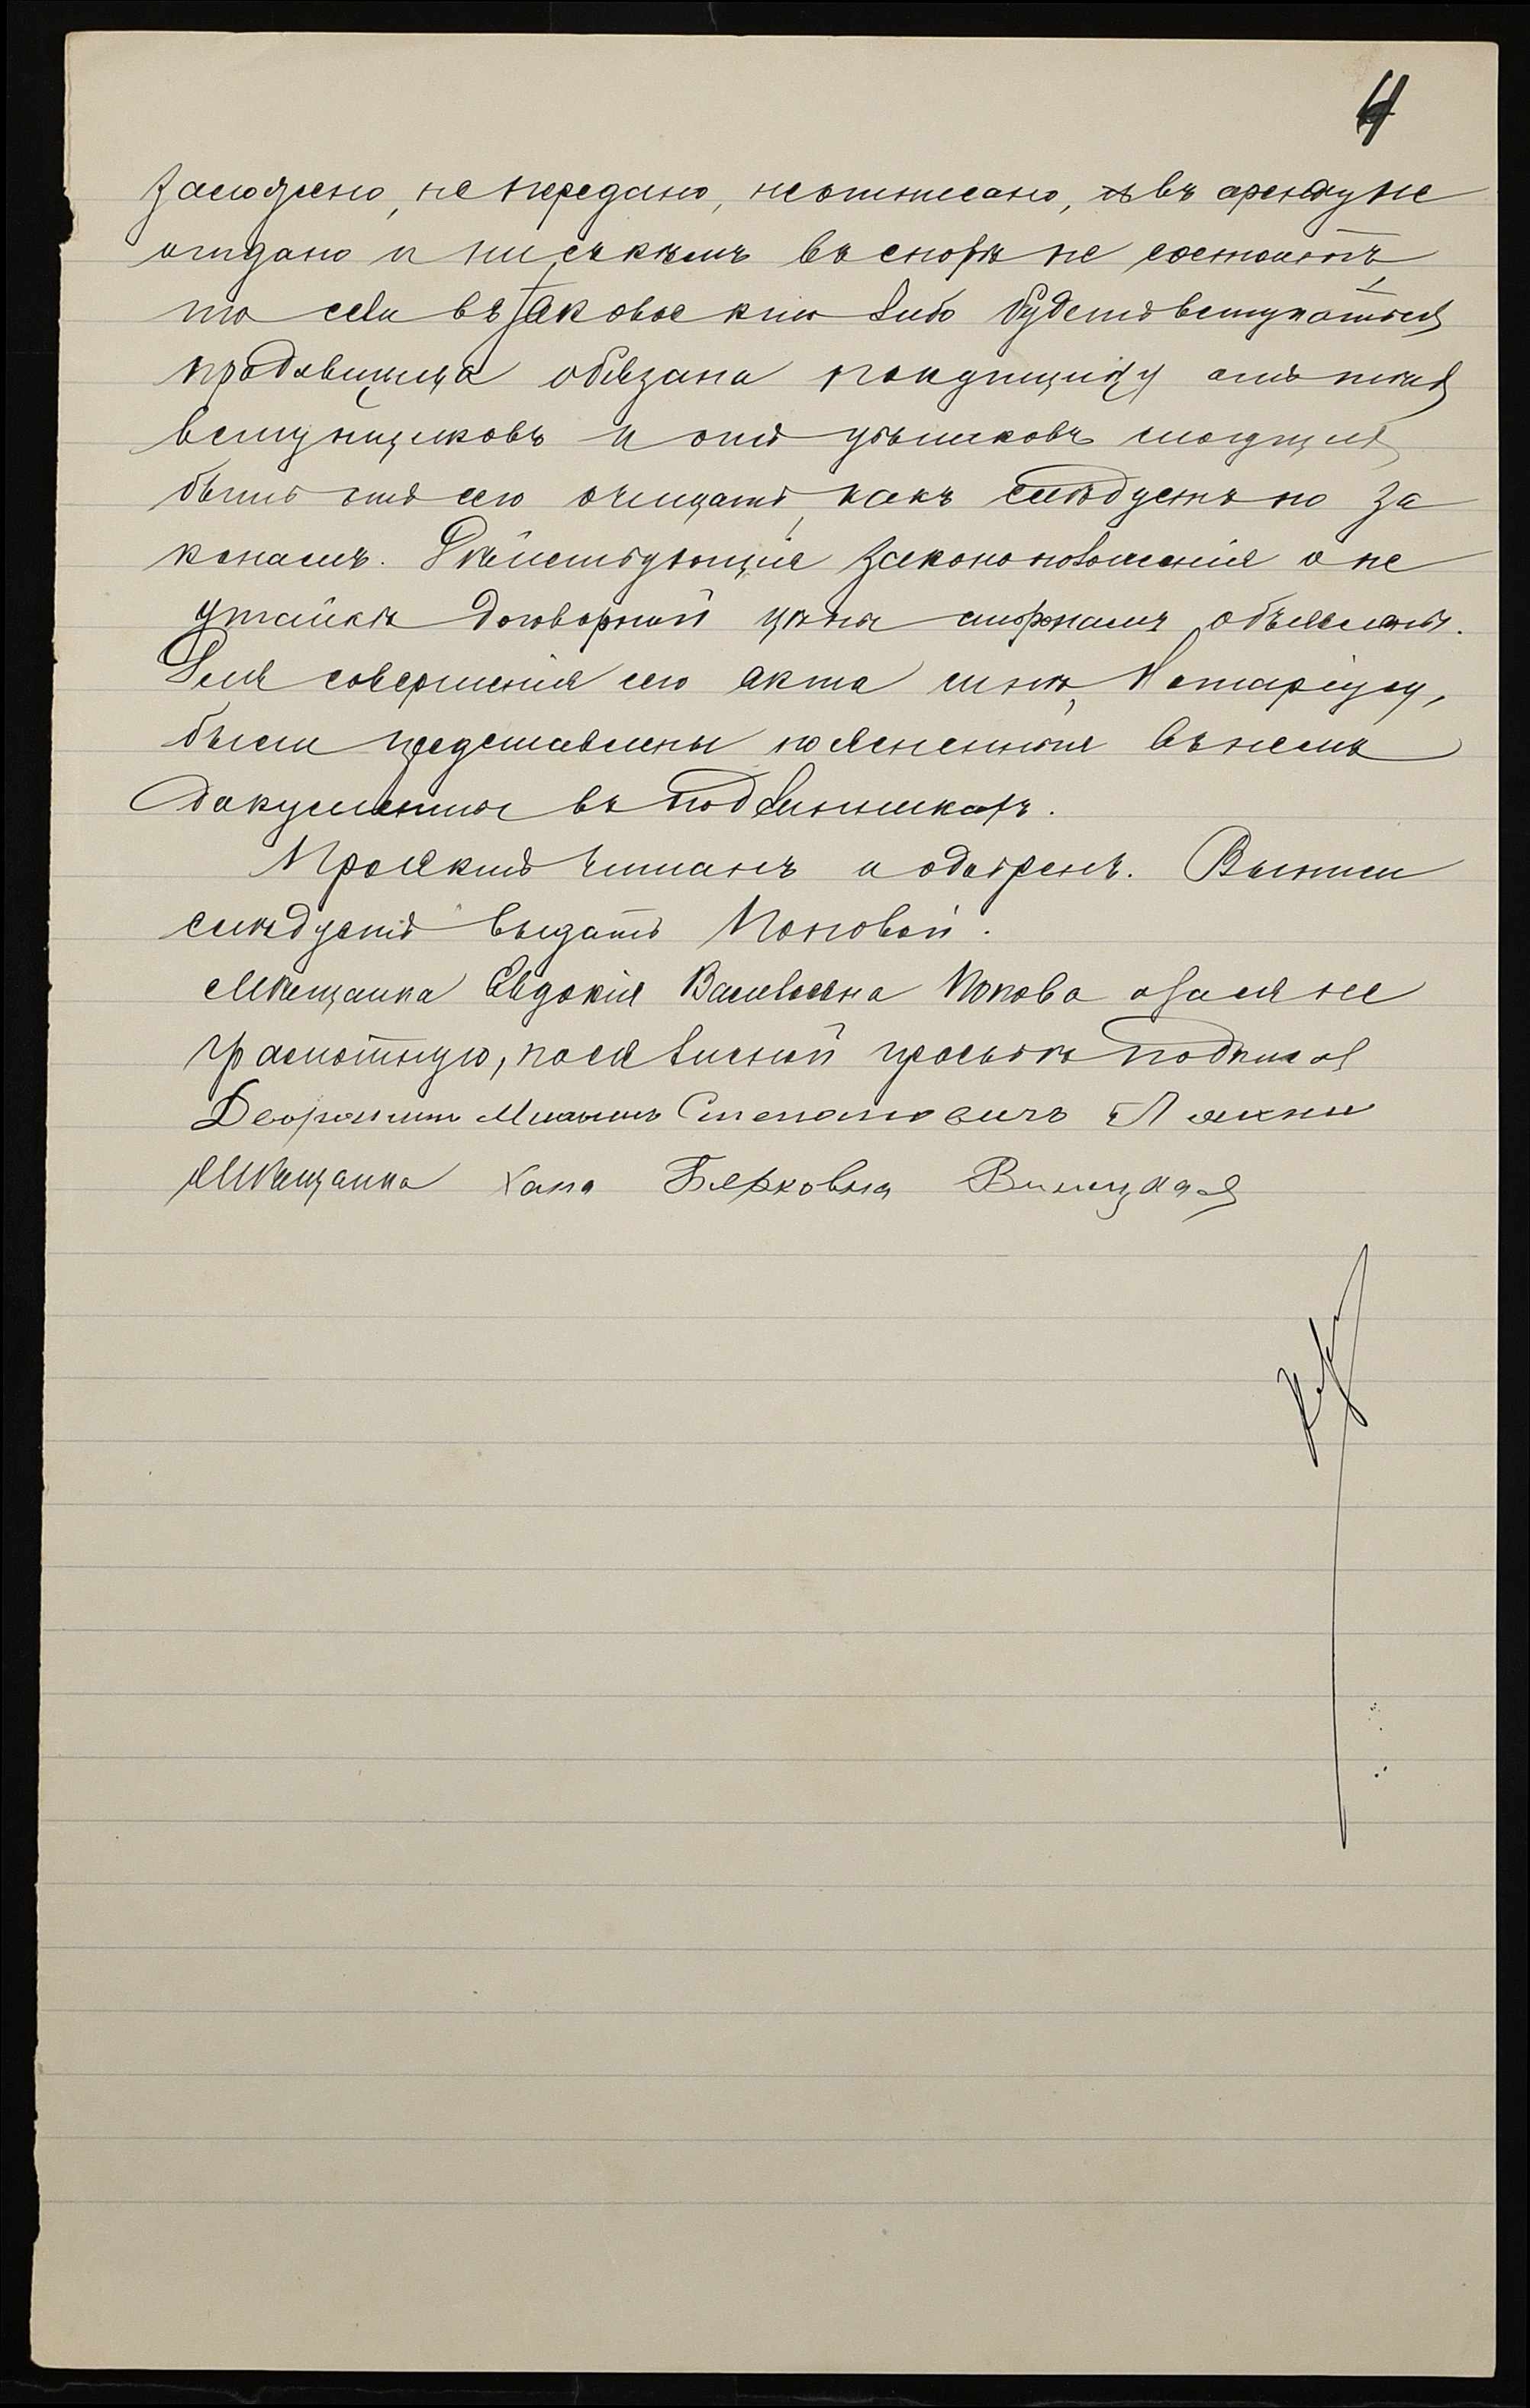 4
заложено, не передано, не отписано, въ аренду не
отдано и ни съ кѣмъ въ спорѣ не состоитъ,
то если въ таковое кто либо будетъ вступаться
продавщица обязана покупщицу отъ тѣхъ
вступщиковъ и отъ убытковъ могущихъ
быть отъ сего очищать, какъ слѣдуетъ по за
конамъ. Дѣйствующія законоположенія о не
утайкѣ договорной цѣны сторонамъ объявлены.
Для совершенія сего акта мнѣ, Нотаріусу,
были представлены поясненные въ немъ
документы въ подлинникахъ.
Проектъ читанъ и одобренъ. Выпись
слѣдуетъ выдать Поповой.
Мѣщанка Евдокія Васильевна Попова а за нее
грамотную, по ея личной просьбѣ подписал
Дворянинъ Степановичъ
Мѣщанка Хана Берковна Винецкая